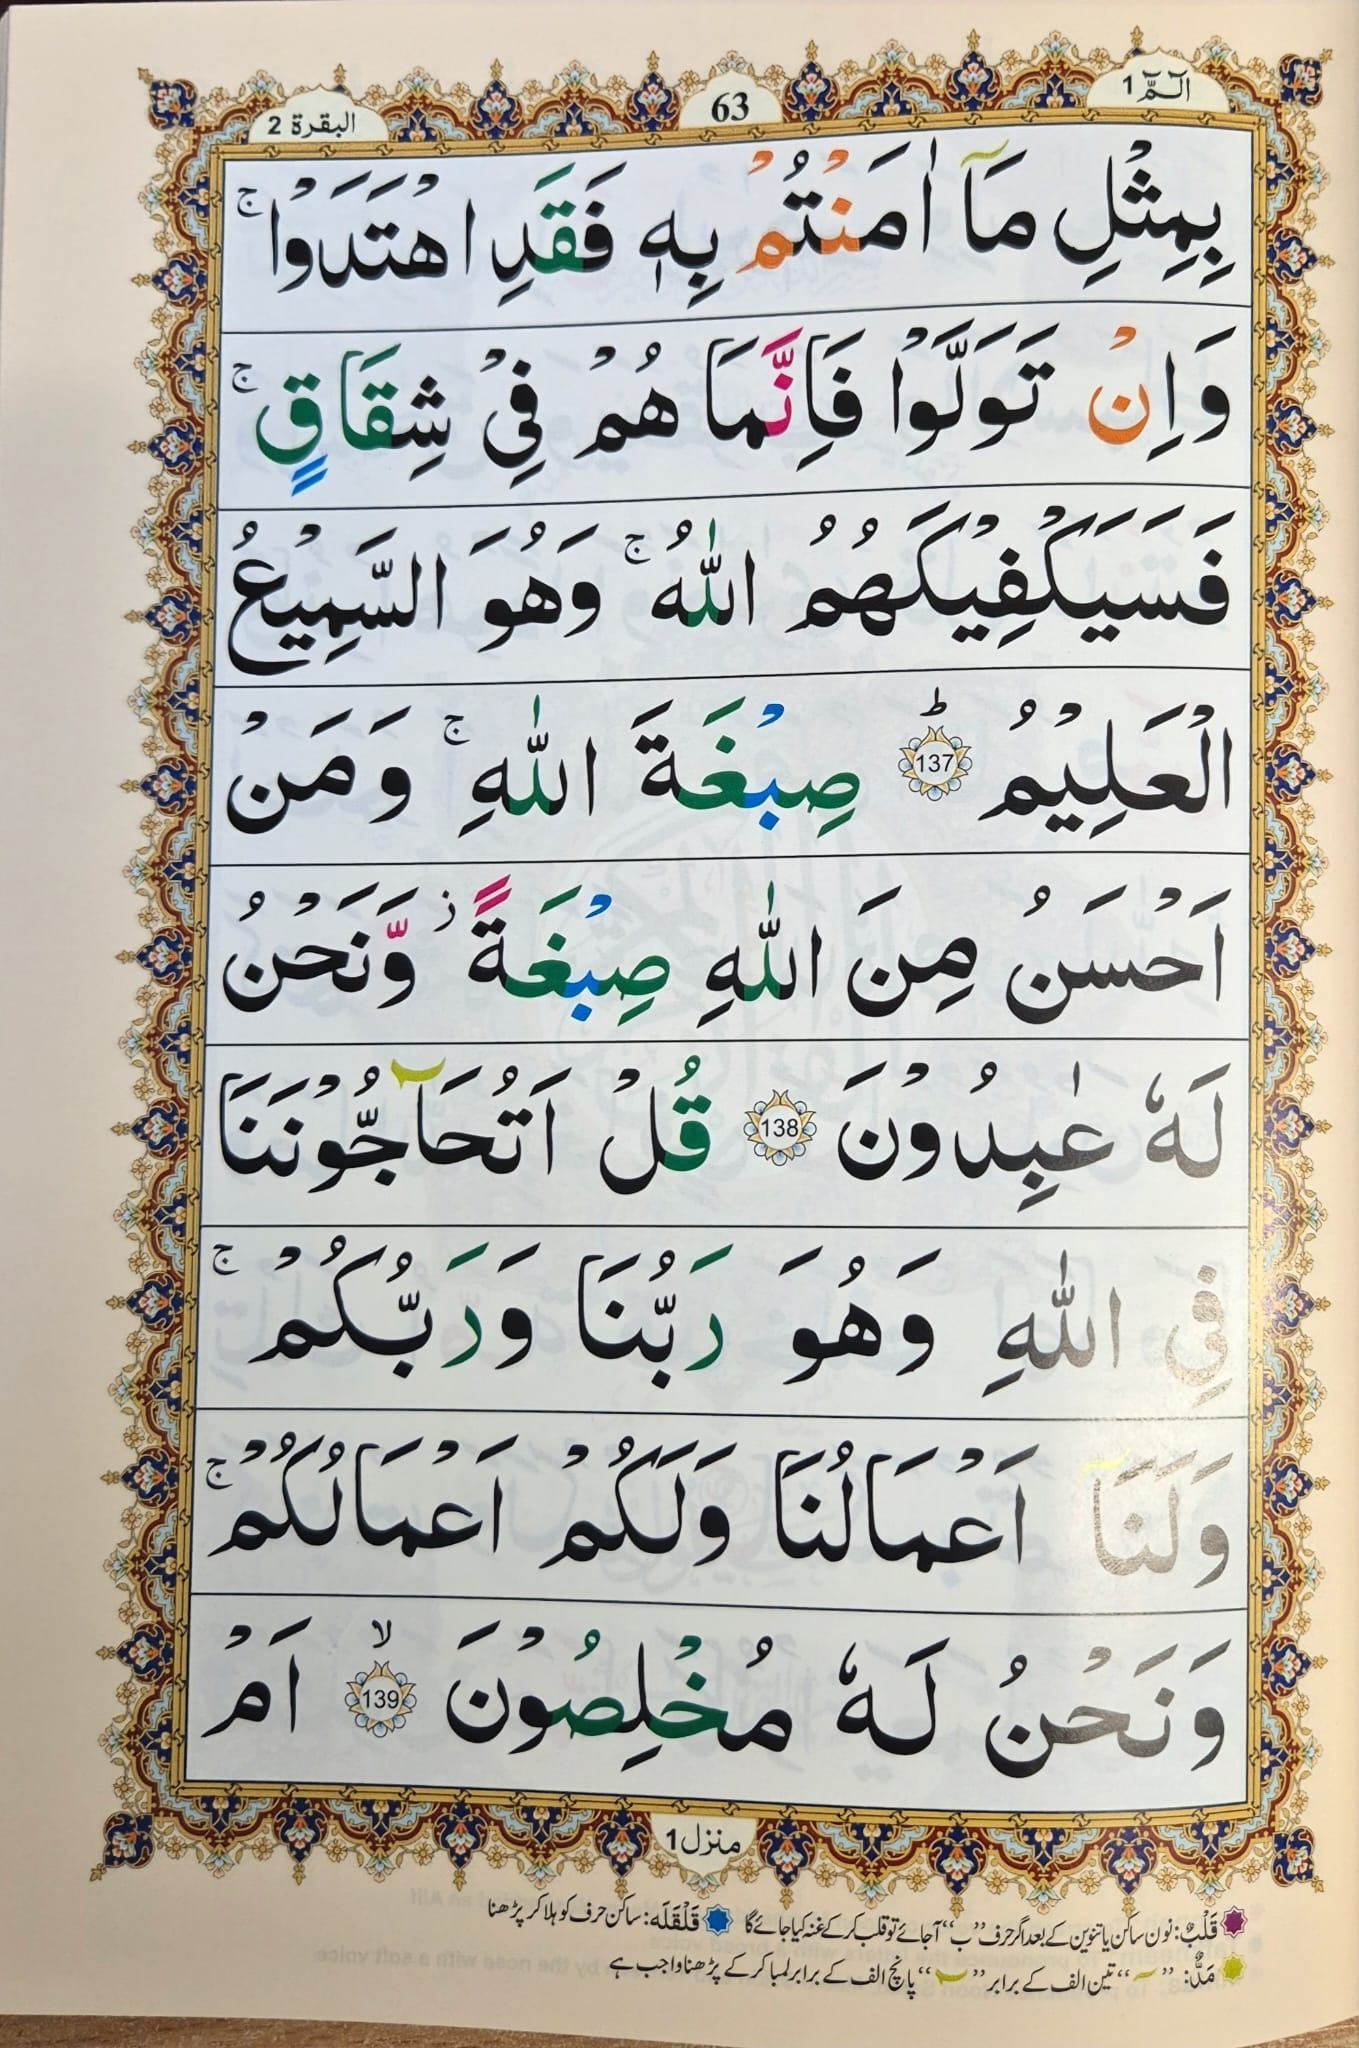 البقرة 2
63
الٓمّٓ 1
بِمِثْلِ مَاۤ اٰمَنْتُمْ بِهٖ فَقَدِ اهْتَدَوْا ۚ
وَاِنْ تَوَلَّوْا فَاِنَّمَا هُمْ فِیْ شِقَاقٍ ۚ
فَسَیَكْفِیْكَهُمُ اللّٰهُ ۚ وَهُوَ السَّمِیْعُ
الْعَلِیْمُ ؕ 137 صِبْغَةَ اللّٰهِ ۚ وَمَنْ
اَحْسَنُ مِنَ اللّٰهِ صِبْغَةً ؗ وَّنَحْنُ
لَهٗ عٰبِدُوْنَ 138 قُلْ اَتُحَآجُّوْنَنَا
فِی اللّٰهِ وَهُوَ رَبُّنَا وَرَبُّكُمْ ۚ
وَلَنَاۤ اَعْمَالُنَا وَلَكُمْ اَعْمَالُكُمْ ۚ
وَنَحْنُ لَهٗ مُخْلِصُوْنَ ۙ 139 اَمْ
منزل 1
قَلْبٌ: نون ساکن یا تنوین کے بعد اگر حرف “ب” آجائے تو قلب کر کے غنہ کیا جائے گا قَلْقَلَه: ساکن حرف کو ہلا کر پڑھنا
مَدٌّ: “ ۤ ” تین الف کے برابر “ ٓ ” پانچ الف کے برابر لمبا کر کے پڑھنا واجب ہے